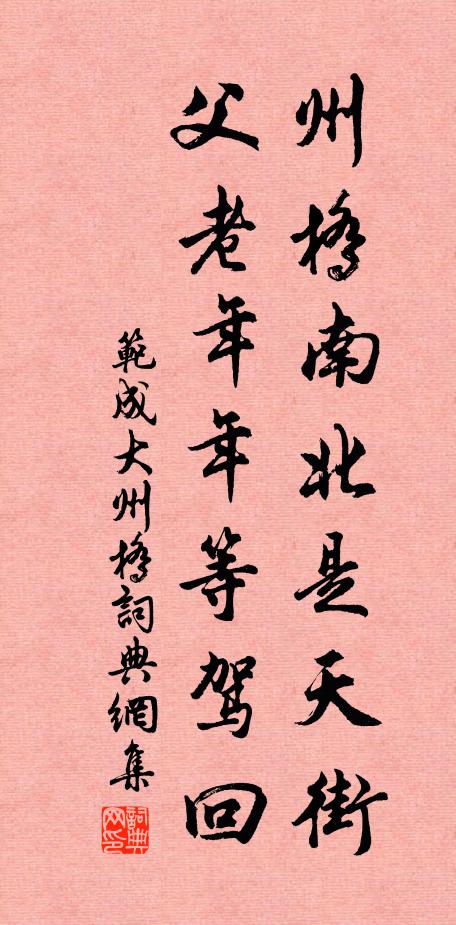 州橋南北是天街
父老年年等駕回
範成大州橋詞典網集
詞典网印